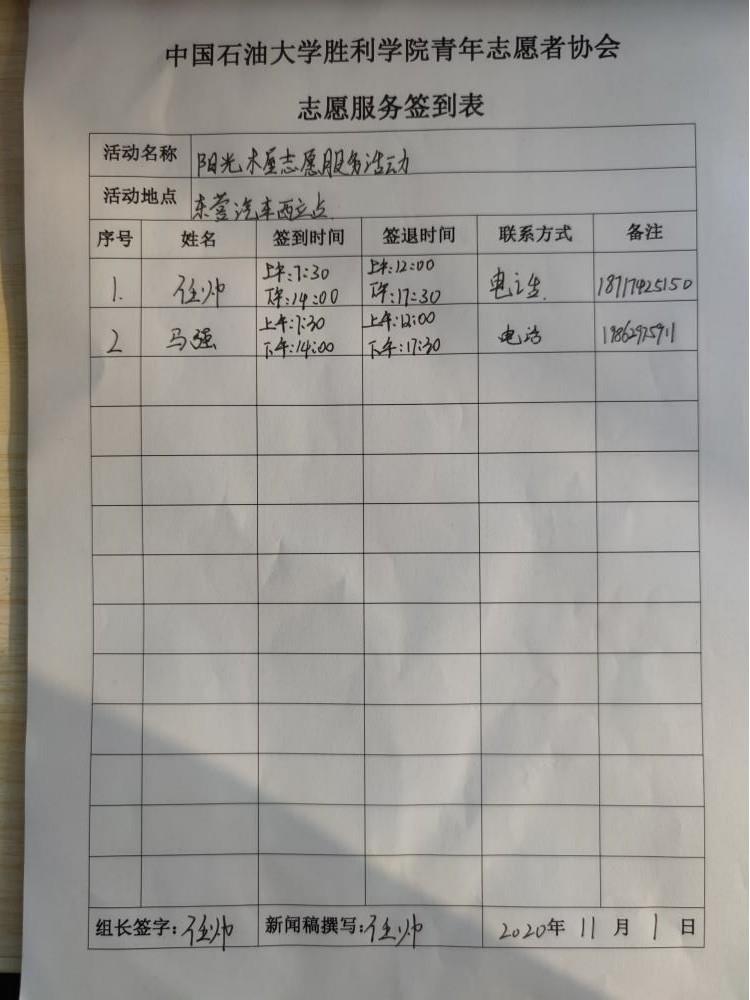 中国石油大学胜利学院青年志愿者协会
志愿服务签到表
活动名称 阳光木屋志愿服务活动
活动地点 东营汽车西立点
序号 姓名 签到时间 签退时间 联系方式 备注
1. 任帅 上午:7:30 上午:12:00 电话 18717425150
下午:14:00 下午:17:30
2 马强 上午:7:30 上午:12:00 电话
下午:14:00 下午:17:30
组长签字:任帅 新闻稿撰写:任帅 2020年 11 月 1 日